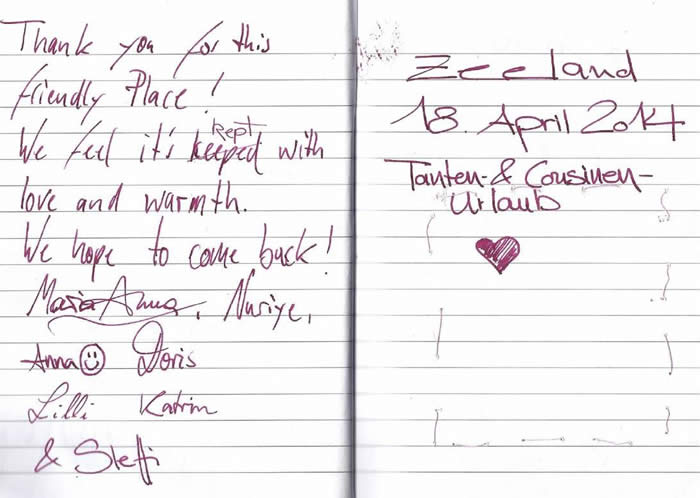 Thank you for this
friendly Place!
kept
We feel it's keeped with
love and warmth.
We hope to come back!
Maria Anna, Nuriye,
Anna Doris
Lilli Katrin
& Steffi
Zeeland
18. April 2014
Tanten- & Cousinen-
Urlaub